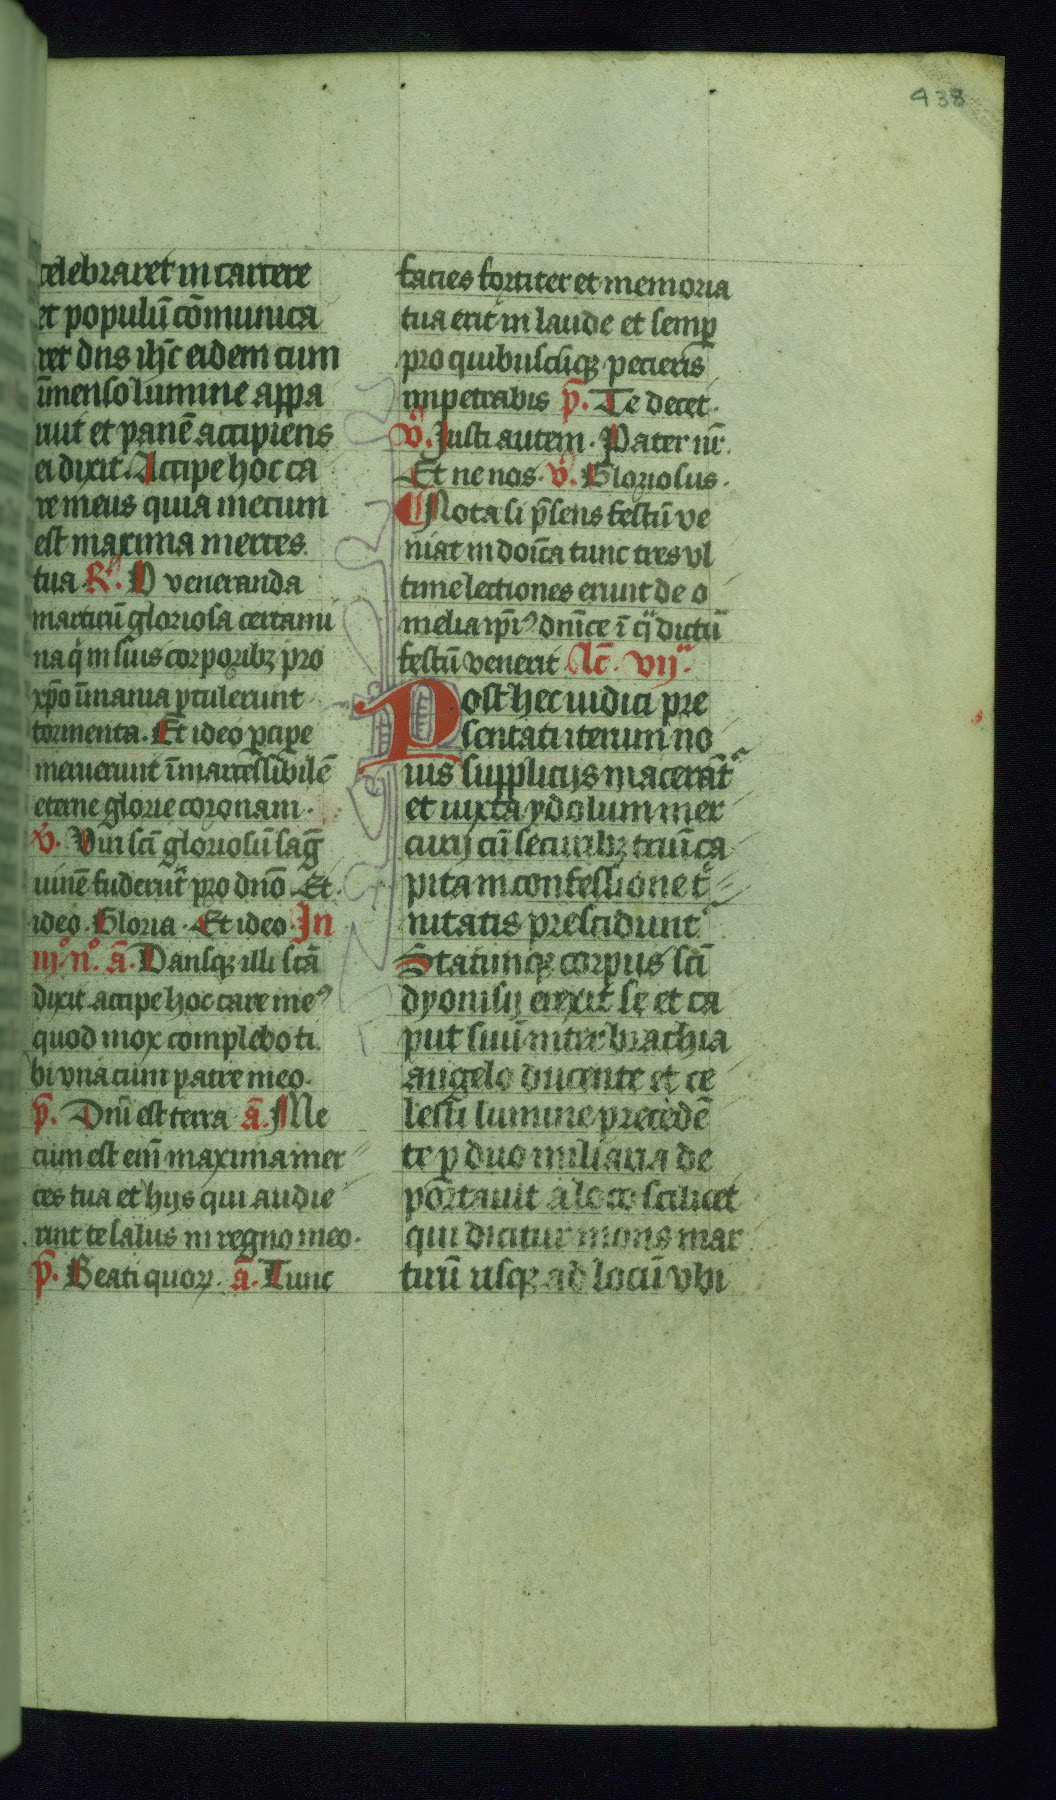 438
celebraret in carcere
et populū cōmunica
ret dn̄s ih̄c eidem cum
īmenso lumine appa
ruit et panē accipiens
ei dixit. Accipe hoc ca
re meus quia mecum
est maxima merces
tua. R̄. O veneranda
martirū gloriosa certami
na q̄ in suis corporibꝫ pro
xp̄o īmania ꝑtulerunt
tormenta. Et ideo ꝑcipe
meruerunt īmarcessibilē
eterne glorie coronam.
v̄. Viri sc̄i gloriosū sāg
uinē fuderūt pro dn̄o. Et
ideo. Gloria. Et ideo. In
iij.º n.º ā. Dansqꝫ illi sc̄ā
dixit accipe hoc care meꝰ
quod mox complebo ti
bi vna cum patre meo.
p̄. Dn̄i est terra ā. Me
cum est eni̅ maxima mer
ces tua et hijs qui audie
rint te salus in regno meo.
p̄. Beati quoꝝ. ā. Tunc
facies fortiter et memoria
tua erit in laude et semꝑ
pro quibuscūqꝫ pecieris
impetrabis p̄. Te decet.
v̄. Justi autem. Pater nr̄.
Et ne nos. v̄. Gloriosus.
Nota si p̄sens festū ve
niat in doīca tunc tres vl
time lectiones erunt de o
melia ip̄iꝰ dn̄ice ī q̄ dictū
festū venerit. Lc̄. vijᵃ.
Post hec iudici pre
sentati iterum no
uis supplicijs macerāt᷑
et iuxta ydolum mer
curij cū securibꝫ triū ca
pita in confessione t̄
nitatis prescidunt᷑
Statimqꝫ corpus sc̄i
dyonisij erexit se et ca
put suū inter brachia
angelo ducente et ce
lesti lumine precedē
te ꝑ duo miliaria de
portauit a loco scilicet
qui dicitur mons mar
tirū usqꝫ ad locū vbi